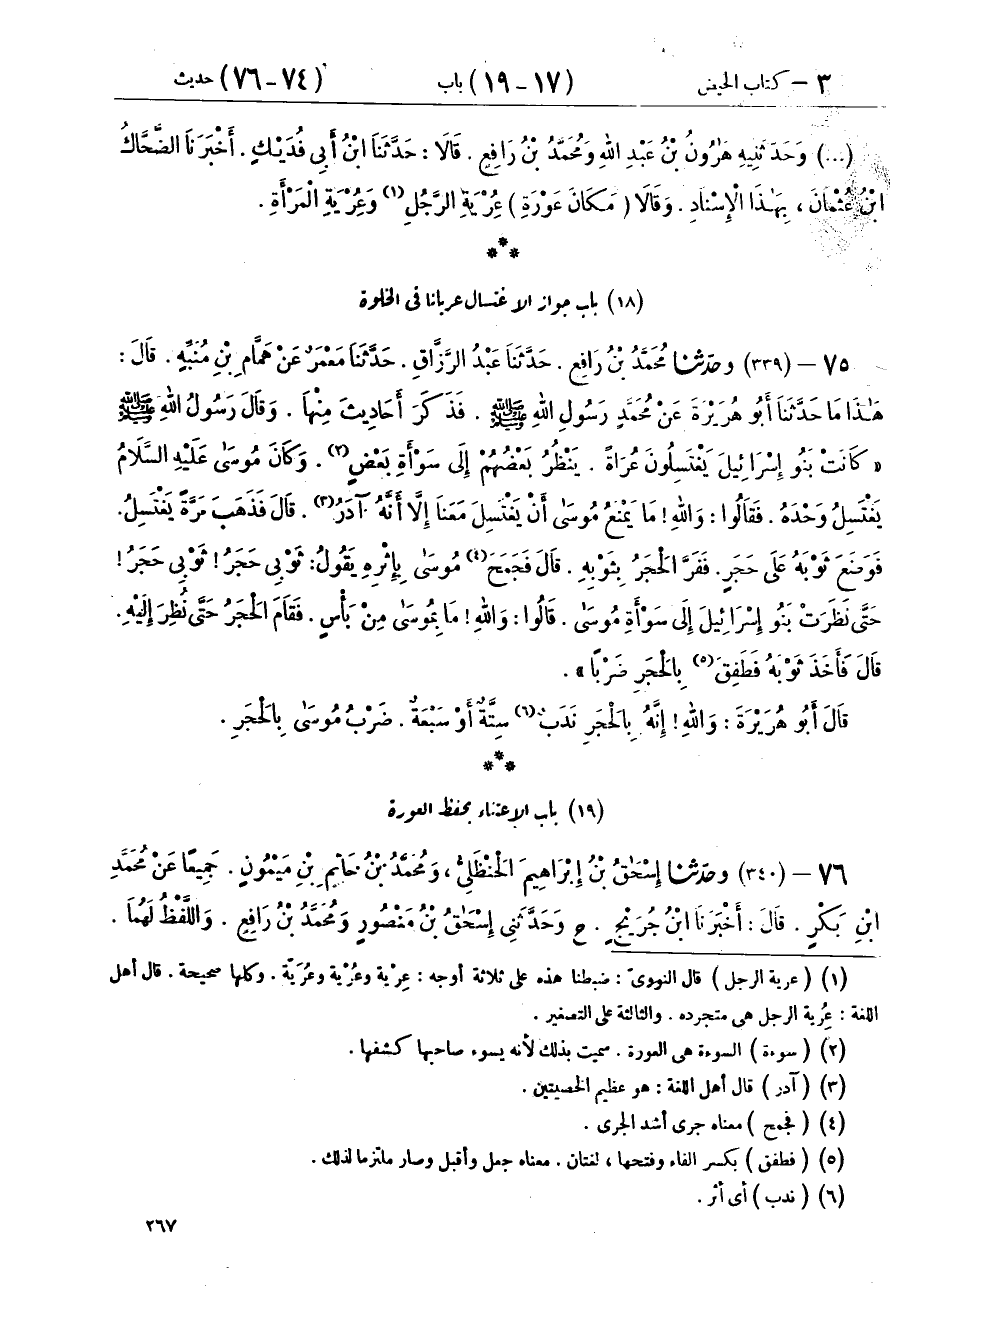 ٣ – كتاب الحيض (١٧ – ١٩) باب (٧٤ – ٧٦) حديث
(...) وَحَدَّثَنِيهِ هَٰرُونُ بْنُ عَبْدِ اللهِ وَمُحَمَّدُ بْنُ رَافِعٍ . قَالَا : حَدَّثَنَا ابْنُ أَبِي فُدَيْكٍ . أَخْبَرَنَا الضَّحَّاكُ
ابْنُ عُثْمَانَ ، بِهَٰذَا الْإِسْنَادِ . وَقَالَا ( مَكَانَ عَوْرَةِ ) عُرْيَةِ الرَّجُلِ (١) وَعُرْيَةِ الْمَرْأَةِ .
***
(١٨) باب جواز الاغتسال عريانا فى الخلوة
٧٥ – (٣٣٩) وحدّثنا مُحَمَّدُ بْنُ رَافِعٍ . حَدَّثَنَا عَبْدُ الرَّزَّاقِ . حَدَّثَنَا مَعْمَرٌ عَنْ هَمَّامِ بْنِ مُنَبِّهٍ . قَالَ :
هَٰذَا مَا حَدَّثَنَا أَبُو هُرَيْرَةَ عَنْ مُحَمَّدٍ رَسُولِ اللهِ ﷺ . فَذَكَرَ أَحَادِيثَ مِنْهَا . وَقَالَ رَسُولُ اللهِ ﷺ
« كَانَتْ بَنُو إِسْرَائِيلَ يَغْتَسِلُونَ عُرَاةً . يَنْظُرُ بَعْضُهُمْ إِلَى سَوْأَةِ بَعْضٍ (٢) . وَكَانَ مُوسَىٰ عَلَيْهِ السَّلَامُ
يَغْتَسِلُ وَحْدَهُ . فَقَالُوا : وَاللهِ ! مَا يَمْنَعُ مُوسَىٰ أَنْ يَغْتَسِلَ مَعَنَا إِلَّا أَنَّهُ آدَرُ (٣) . قَالَ فَذَهَبَ مَرَّةً يَغْتَسِلُ .
فَوَضَعَ ثَوْبَهُ عَلَى حَجَرٍ . فَفَرَّ الْحَجَرُ بِثَوْبِهِ . قَالَ فَجَمَحَ (٤) مُوسَىٰ بِإِثْرِهِ يَقُولُ : ثَوْبِي حَجَرُ ! ثَوْبِي حَجَرُ !
حَتَّى نَظَرَتْ بَنُو إِسْرَائِيلَ إِلَى سَوْأَةِ مُوسَىٰ . قَالُوا : وَاللهِ ! مَا بِمُوسَىٰ مِنْ بَأْسٍ . فَقَامَ الْحَجَرُ حَتَّى نُظِرَ إِلَيْهِ .
قَالَ فَأَخَذَ ثَوْبَهُ فَطَفِقَ (٥) بِالْحَجَرِ ضَرْبًا » .
قَالَ أَبُو هُرَيْرَةَ : وَاللهِ ! إِنَّهُ بِالْحَجَرِ نَدَبٌ (٦) سِتَّةٌ أَوْ سَبْعَةٌ . ضَرْبُ مُوسَىٰ بِالْحَجَرِ .
***
(١٩) باب الاعتناء بحفظ العورة
٧٦ – (٣٤٠) وحدّثنا إِسْحَٰقُ بْنُ إِبْرَاهِيمَ الْحَنْظَلِيُّ ، وَمُحَمَّدُ بْنُ حَاتِمِ بْنِ مَيْمُونٍ . جَمِيعًا عَنْ مُحَمَّدِ
ابْنِ بَكْرٍ . قَالَ : أَخْبَرَنَا ابْنُ جُرَيْجٍ . ح وَحَدَّثَنِي إِسْحَٰقُ بْنُ مَنْصُورٍ وَمُحَمَّدُ بْنُ رَافِعٍ . وَاللَّفْظُ لَهُمَا .
(١) ( عرية الرجل ) قال النووىّ : ضبطنا هذه على ثلاثة أوجه : عِرْية وعُرْية وعُرَيّة . وكلها صحيحة . قال أهل
اللغة : عُرية الرجل هى متجرده . والثالثة على التصغير .
(٢) ( سوءة ) السوءة هى العورة . سميت بذلك لأنه يسوء صاحبها كشفها .
(٣) ( آدر ) قال أهل اللغة : هو عظيم الخصيتين .
(٤) ( فجمح ) معناه جرى أشد الجرى .
(٥) ( فطفق ) بكسر الفاء وفتحها ، لغتان . معناه جعل وأقبل وصار ملتزما لذلك .
(٦) ( ندب ) أى أثر .
٢٦٧